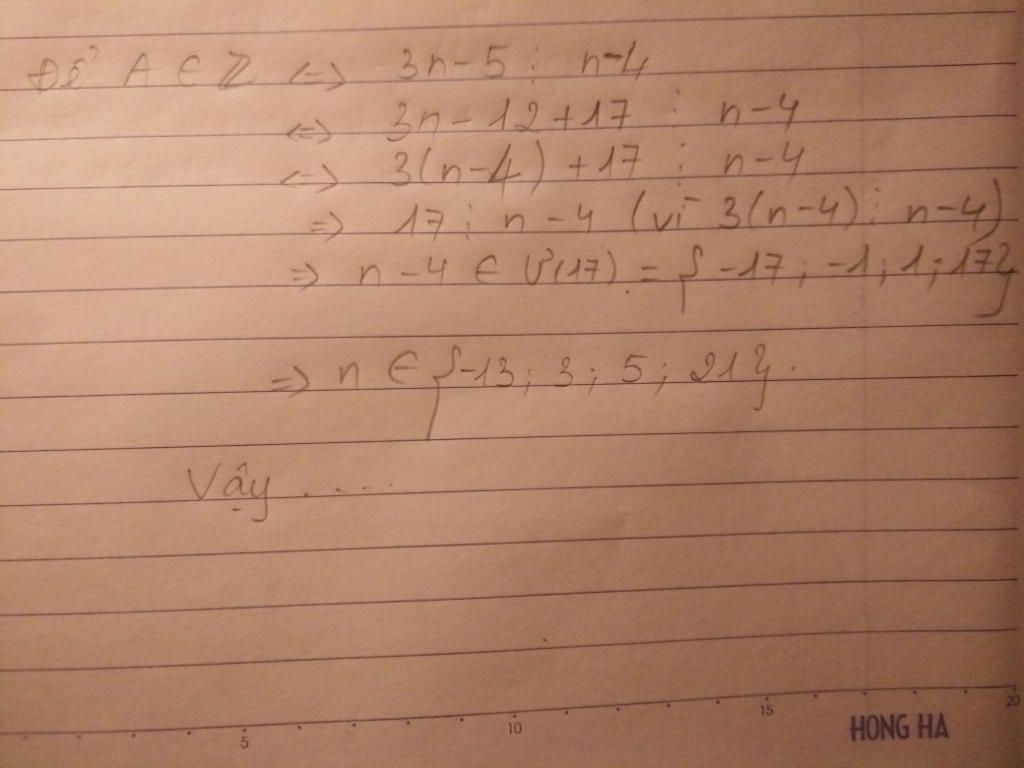 Để A ∈ Z <=> 3n-5 ⋮ n-4
<=> 3n-12+17 ⋮ n-4
<=> 3(n-4)+17 ⋮ n-4
=> 17 ⋮ n-4 (vì 3(n-4) ⋮ n-4)
=> n-4 ∈ Ư(17) = {-17; -1; 1; 17}
=> n ∈ {-13; 3; 5; 21}.
Vậy .....
5 10 15 20
HONG HA